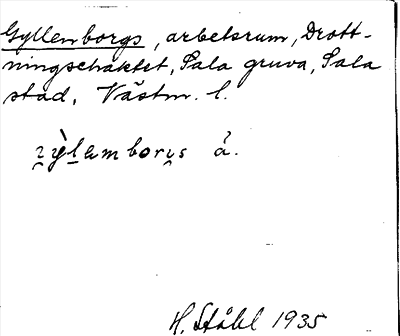 Gyllenborgs, arbetsrum, Drott-
ningschaktet, Sala gruva, Sala
stad, Västm. l.
H. Ståhl 1935